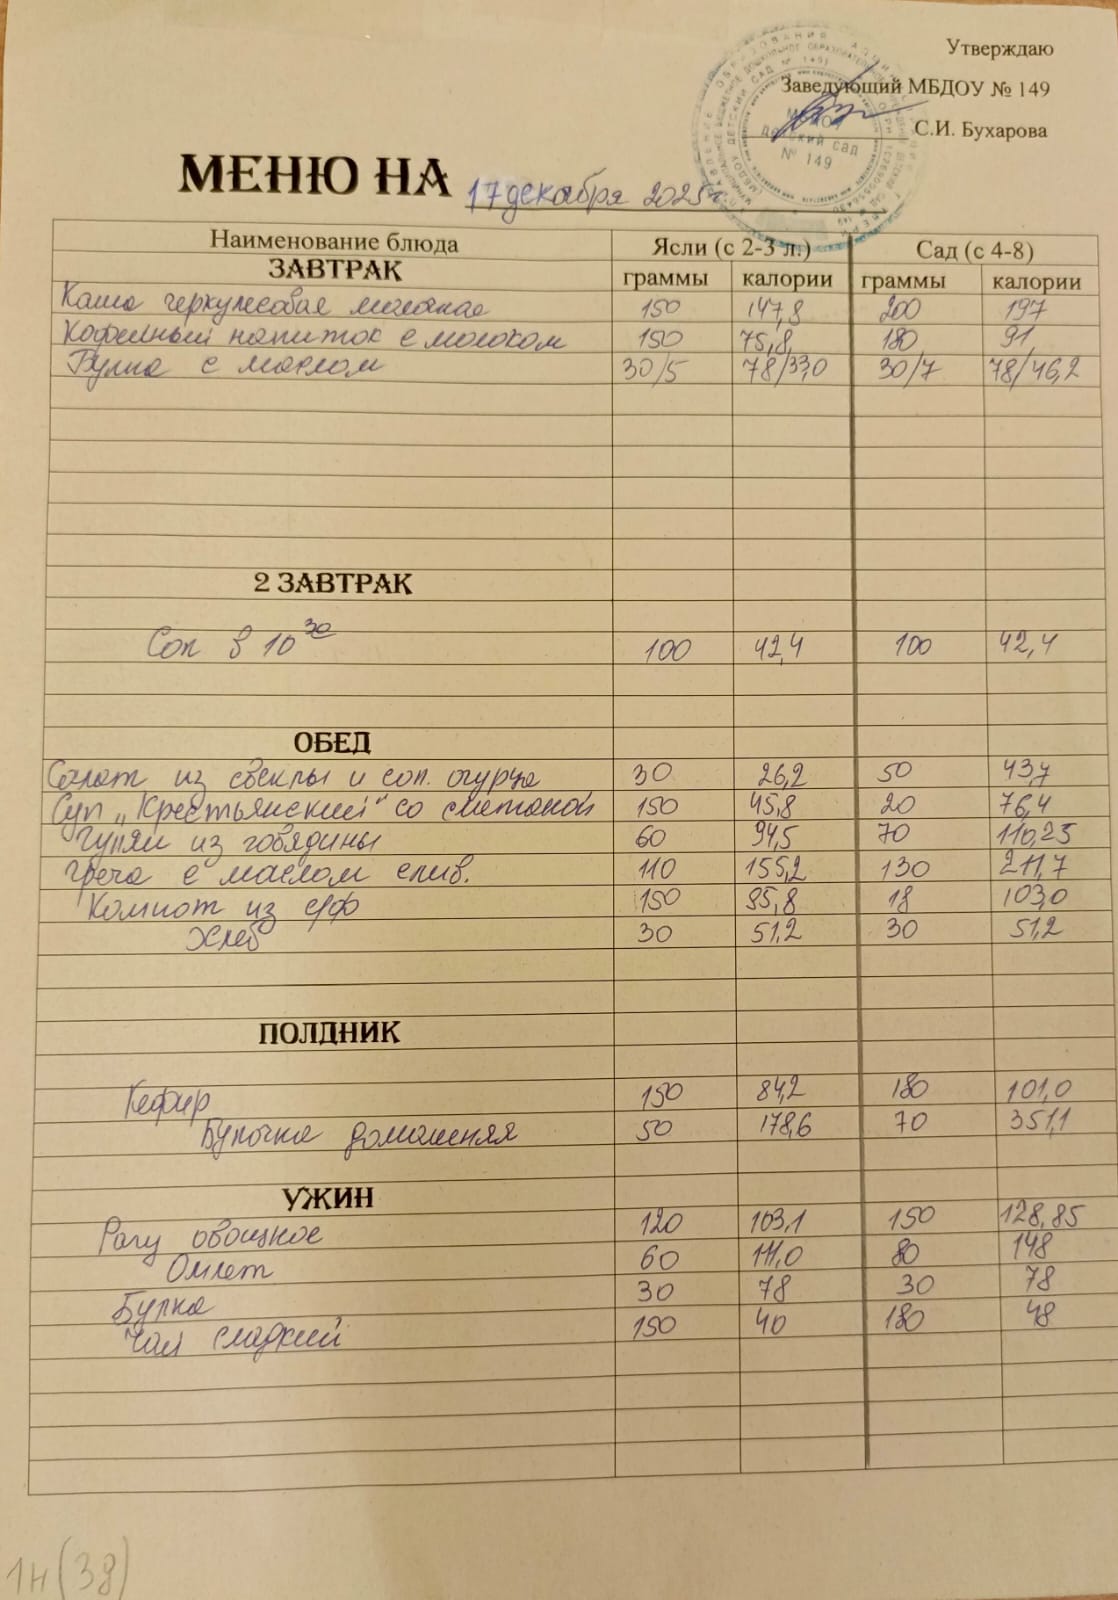 Утверждаю
Заведующий МБДОУ № 149
С.И. Бухарова
МБДОУ
детский сад
№ 149
МЕНЮ НА 17 декабря 2025 г.
Наименование блюда Ясли (с 2-3 л.) Сад (с 4-8)
ЗАВТРАК граммы калории граммы калории
Каша геркулесовая молочная 150 147,8 200 197
Кофейный напиток с молоком 150 75,8 180 91
Булка с маслом 30/5 78/33,0 30/7 78/46,2
2 ЗАВТРАК
Сок в 10 30 100 42,4 100 42,4
ОБЕД
Салат из свеклы и сол. огурца 30 26,2 50 43,7
Суп „Крестьянский" со сметаной 150 45,8 20 76,4
Гуляш из говядины 60 94,5 70 110,25
Греча с маслом слив. 110 155,2 130 211,7
Компот из с/ф 150 85,8 18 103,0
Хлеб 30 51,2 30 51,2
ПОЛДНИК
Кефир 150 84,2 180 101,0
Булочка домашняя 50 178,6 70 351,1
УЖИН
Рагу овощное 120 103,1 150 128,85
Омлет 60 111,0 80 148
Булка 30 78 30 78
Чай сладкий 150 40 180 48
1н (38)